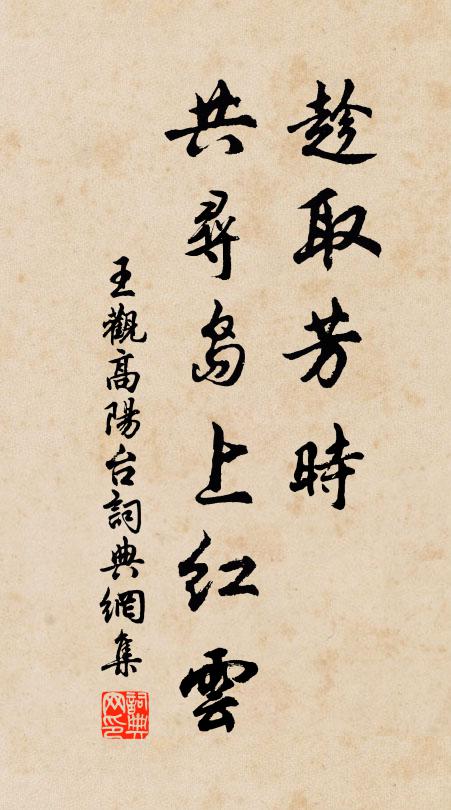 趁取芳時
共尋島上紅雲
王觀高陽台詞典網集
詞典网印